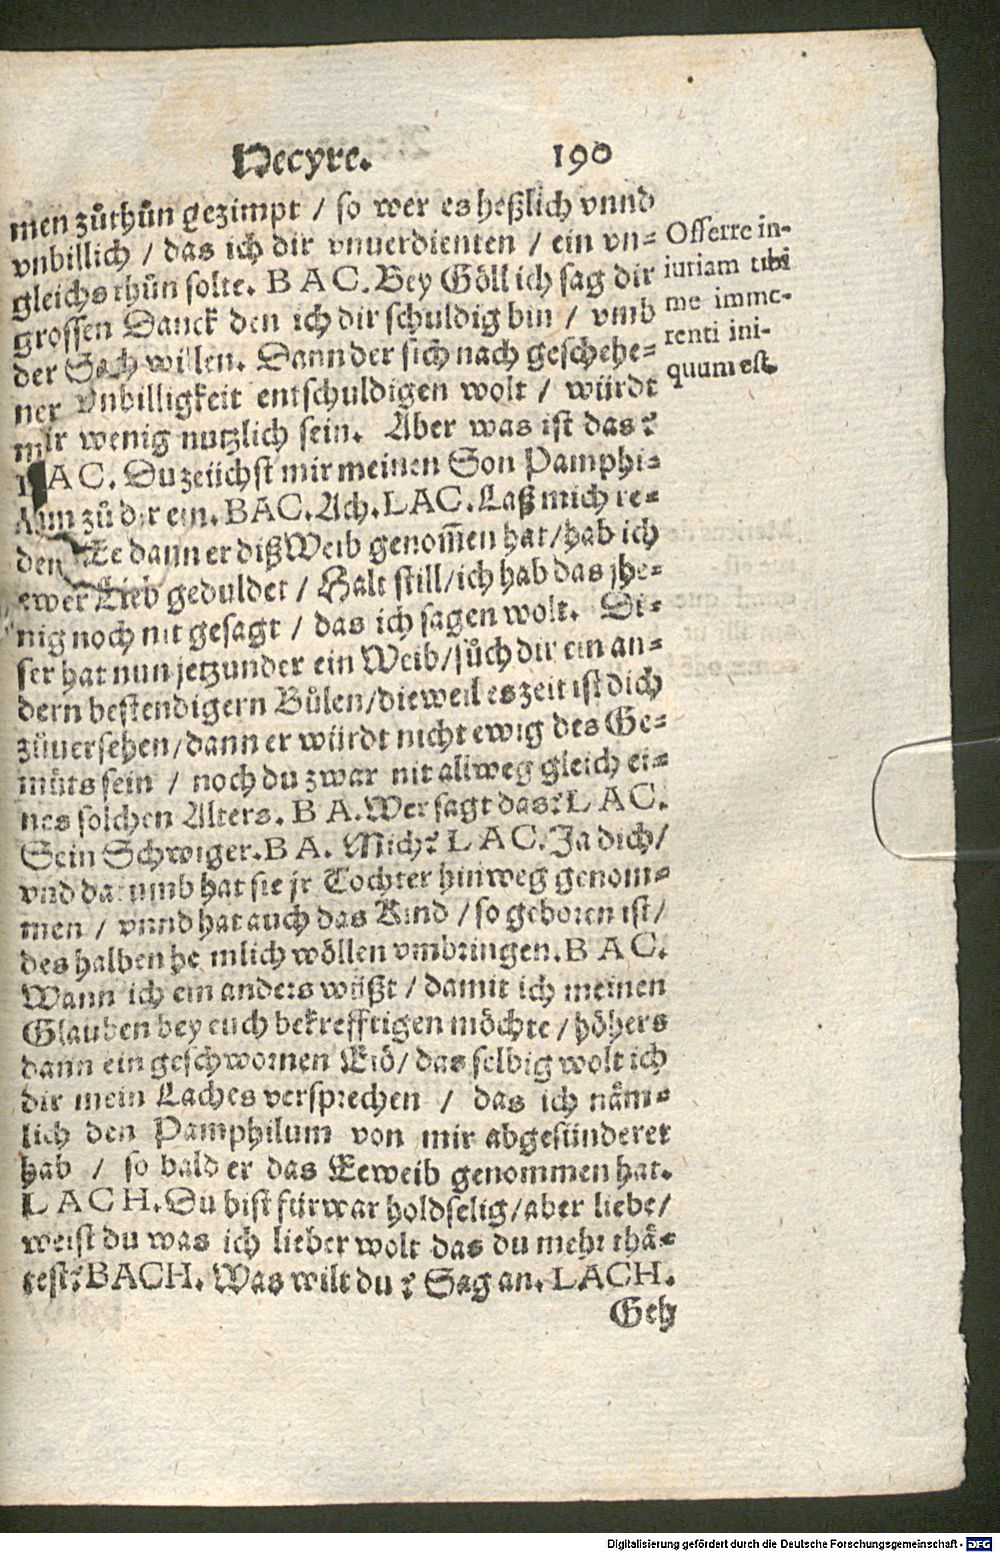 Hecyre. 190
men zůthůn gezimpt / so wer es heßlich vnnd
vnbillich / das ich dir vnuerdienten / ein vn-
gleichs thůn solte. BAC. Bey Göll ich sag dir
grossen Danck den ich dir schuldig bin / vmb
der Sach willen. Dann der sich nach geschehe-
ner Vnbilligkeit entschuldigen wolt / würdt
mir wenig nutzlich sein. Aber was ist das?
LAC. Du zeüchst mir meinen Son Pamphi-
lum zů dir ein. BAC. Ach. LAC. Laß mich re-
den Ee dann er diß Weib genom̃en hat / hab ich
ewer Lieb geduldet / Halt still / ich hab das jhe-
nig noch nit gesagt / das ich sagen wolt. Di-
ser hat nun jetzunder ein Weib / sůch dir ein an-
dern bestendigern Bůlen / dieweil es zeit ist dich
züuersehen / dann er würdt nicht ewig des Ge-
můts sein / noch du zwar nit allweg gleich ei-
nes solchen Alters. BA. Wer sagt das? LAC.
Sein Schwiger. BA. Mich? LAC. Ja dich /
vnd darumb hat sie jr Tochter hinweg genom-
men / vnnd hat auch das Kind / so geboren ist /
deshalben heimlich wöllen vmbringen. BAC.
Wann ich ein anders wüßt / damit ich meinen
Glauben bey euch bekrefftigen möchte / höhers
dann ein geschwornen Eid / das selbig wolt ich
dir mein Laches versprechen / das ich näm-
lich den Pamphilum von mir abgesünderet
hab / so bald er das Eeweib genommen hat.
LACH. Du bist fürwar holdselig / aber liebe /
weist du was ich lieber wolt das du mehr thä-
test? BACH. Was wilt du? Sag an. LACH.
Geh
Offerre in-
iuriam tibi
me imme-
renti ini-
quum est.
Digitalisierung gefördert durch die Deutsche Forschungsgemeinschaft - DFG